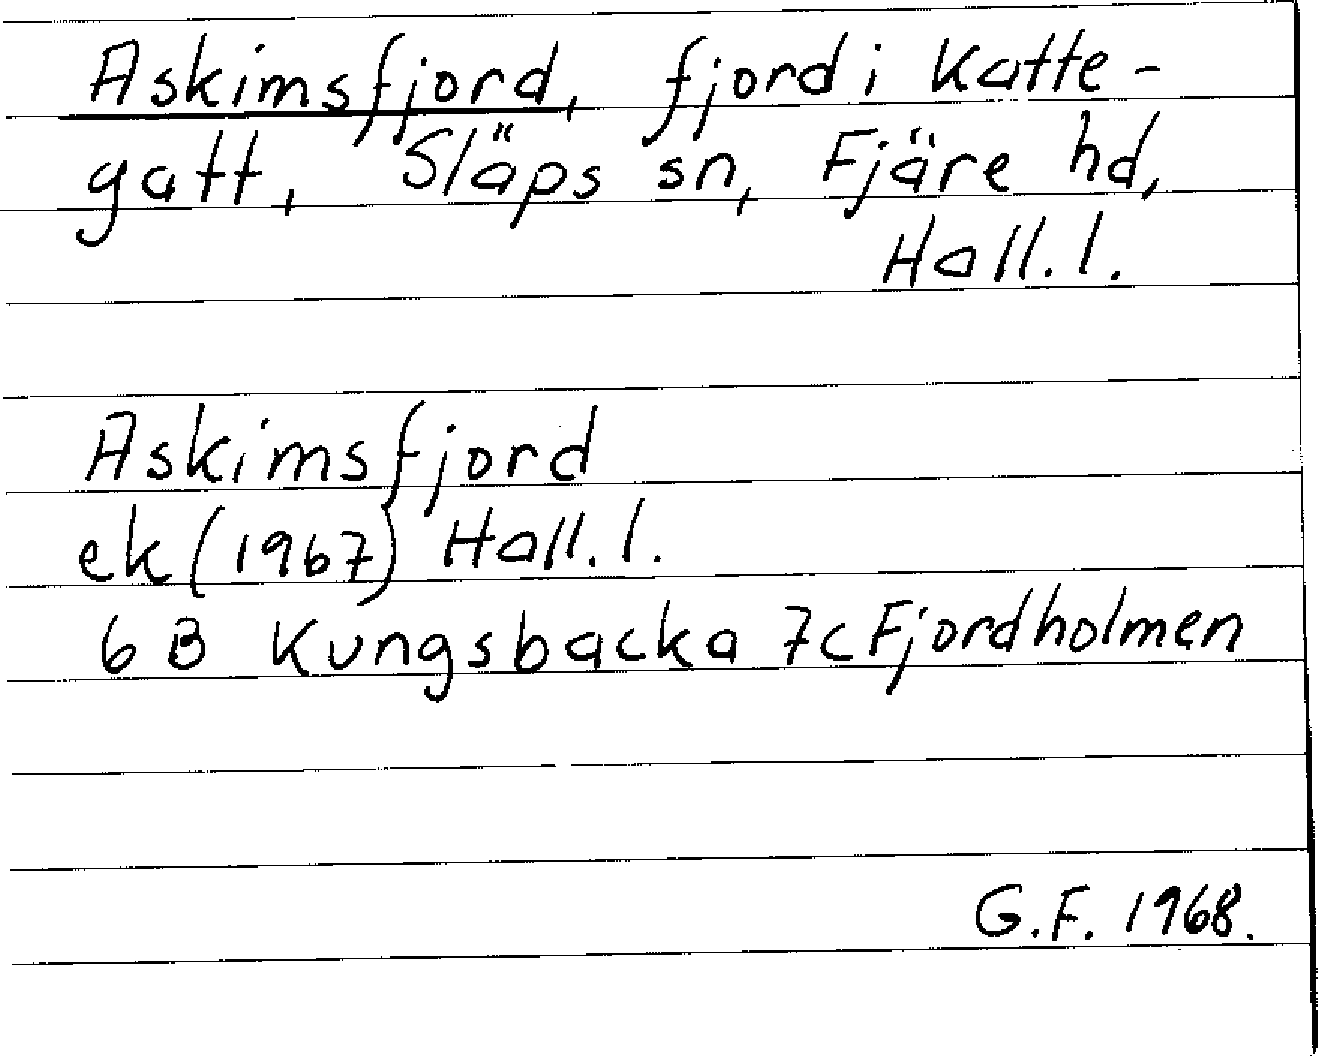 Askimsfjord, fjord i Katte-
gatt, Släps sn, Fjäre hd,
Hall. l.
Askimsfjord
ek (1967) Hall. l.
6 B Kungsbacka 7c Fjordholmen
G.F. 1968.